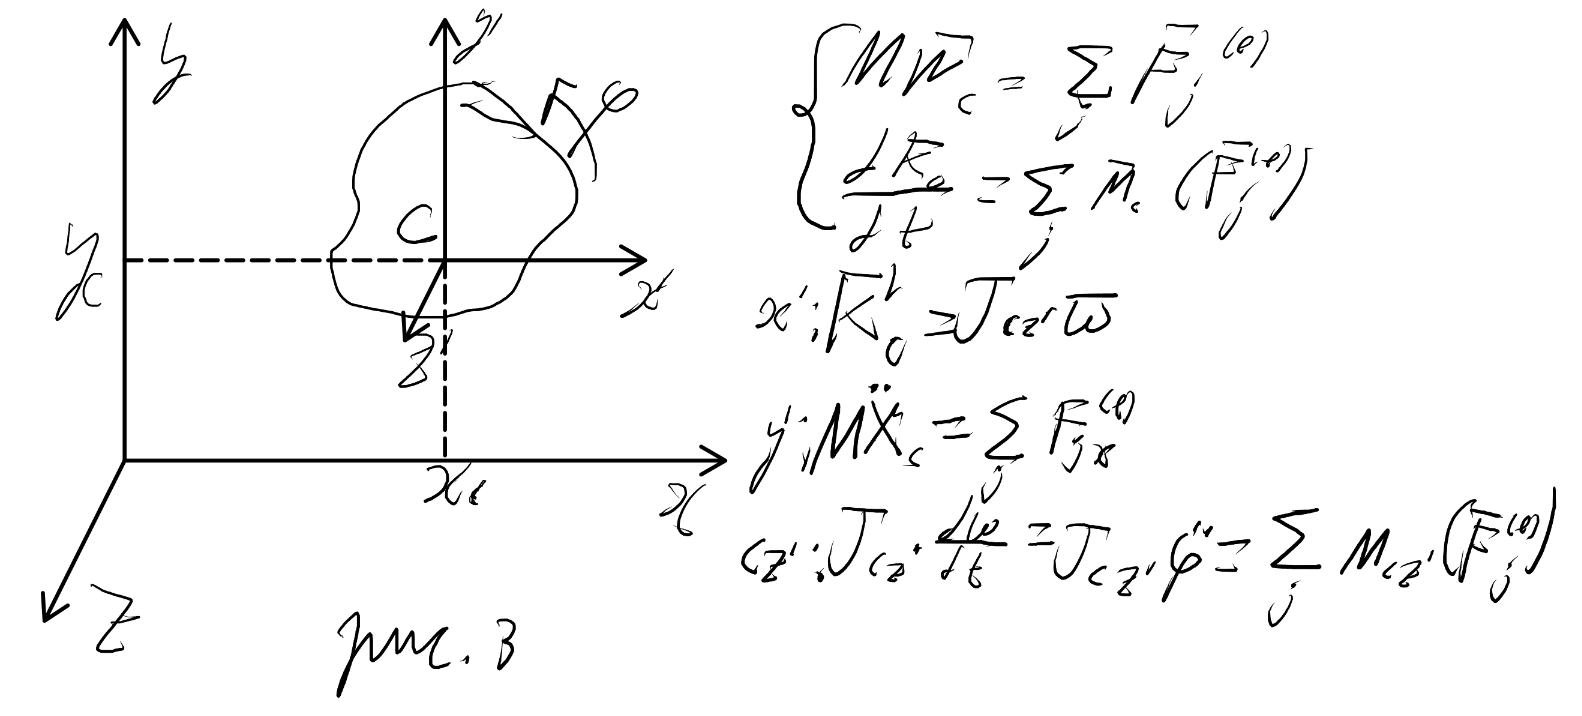 y
y'
φ
C
y_c
x'
z'
x_c
x
z
рис. 3
{ M W̄_c = ∑_j F̄_j^(e)
dK̄_c/dt = ∑_j M̄_c (F̄_j^(e))
x': K̄'_c = J_cz' ω̄
y': MẌ_c = ∑_j F_jx^(e)
cz': J_cz' dω/dt = J_cz' φ̈ = ∑_j M_cz' (F̄_j^(e))